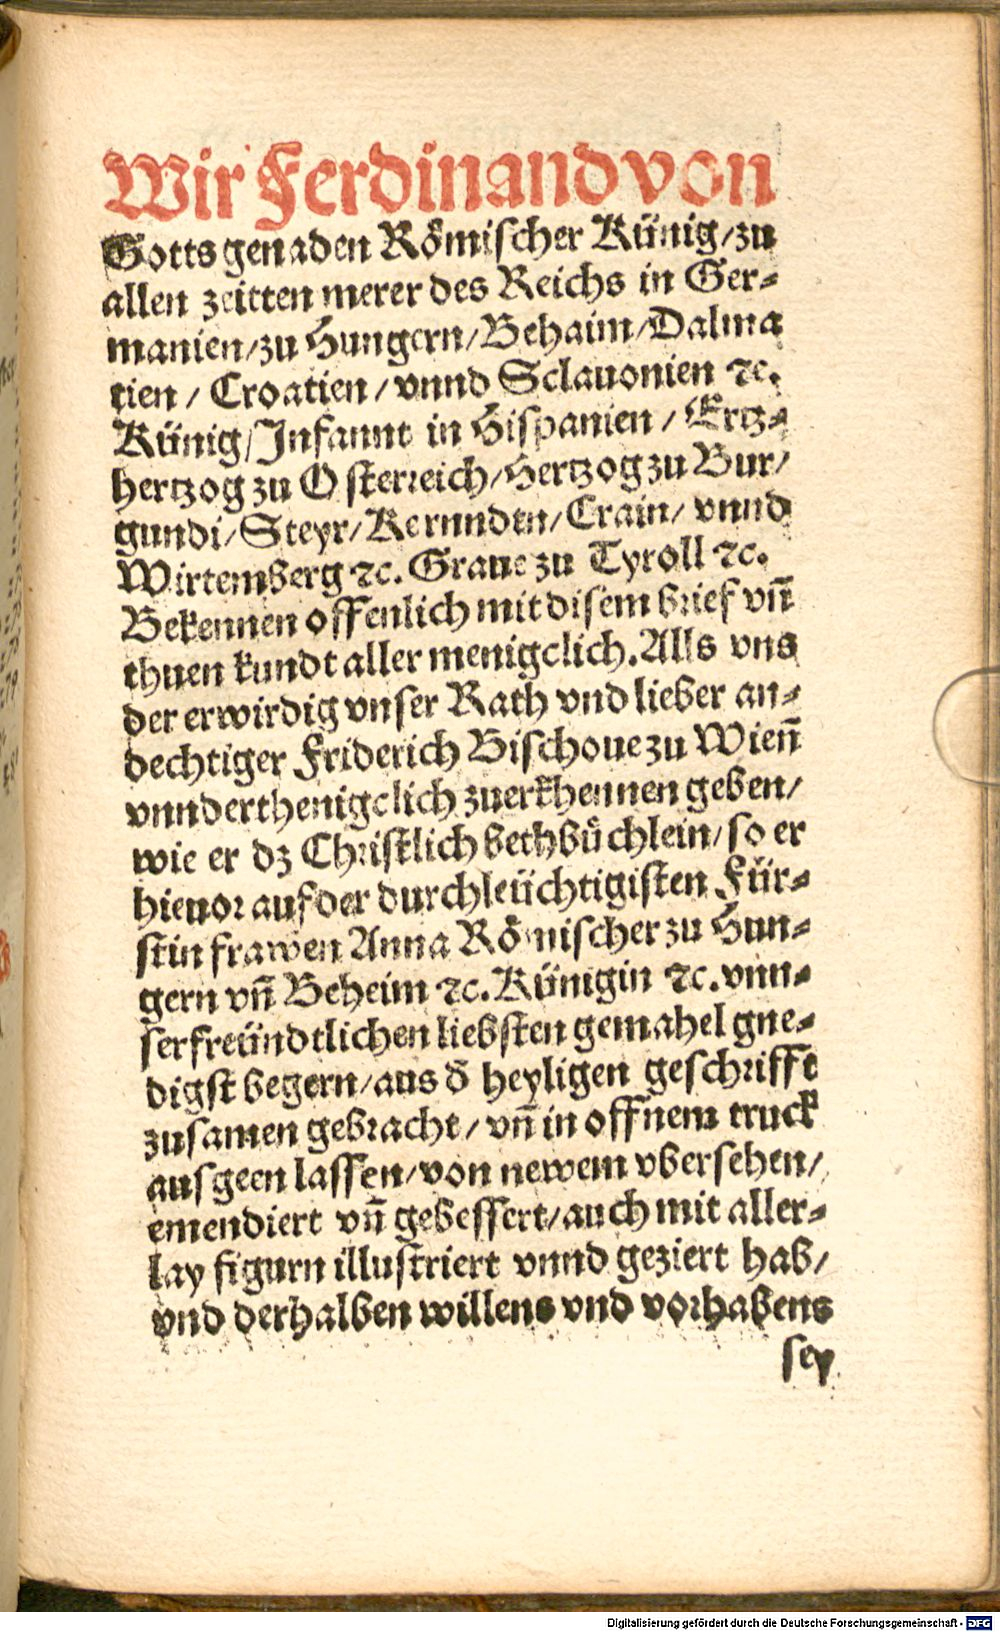 Wir Ferdinand von
Gotts genaden Römischer Künig/zu
allen zeitten merer des Reichs in Ger⸗
manien/zu Hungern/Behaim/Dalma
tien/Croatien/vnnd Sclauonien ⁊c.
Künig/Infannt in Hispanien/Ertz⸗
hertzog zu Osterreich/Hertzog zu Bur/
gundi/Steyr/Kernndten/Crain/vnnd
Wirtemberg ⁊c. Graue zu Tyroll ⁊c.
Bekennen offenlich mit disem brief vñ
thuen kundt aller menigclich. Alls vns
der erwirdig vnser Rath vnd lieber an⸗
dechtiger Friderich Bischoue zu Wieñ
vnnderthenigclich zuerkhennen geben/
wie er dz Christlich bethbüchlein/so er
hieuor auf der durchleüchtigisten Für⸗
stin frawen Anna Römischer zu Hun⸗
gern vñ Beheim ⁊c. Künigin ⁊c. vnn⸗
ser freündtlichen liebsten gemahel gne⸗
digst begern/aus d̄ heyligen geschrifft
zusamen gebracht/vñ in offnem truck
ausgeen lassen/von newem vbersehen/
emendiert vñ gebessert/auch mit aller⸗
lay figurn illustriert vnnd geziert hab/
vnd derhalben willens vnd vorhabens
sey
Digitalisierung gefördert durch die Deutsche Forschungsgemeinschaft - DFG